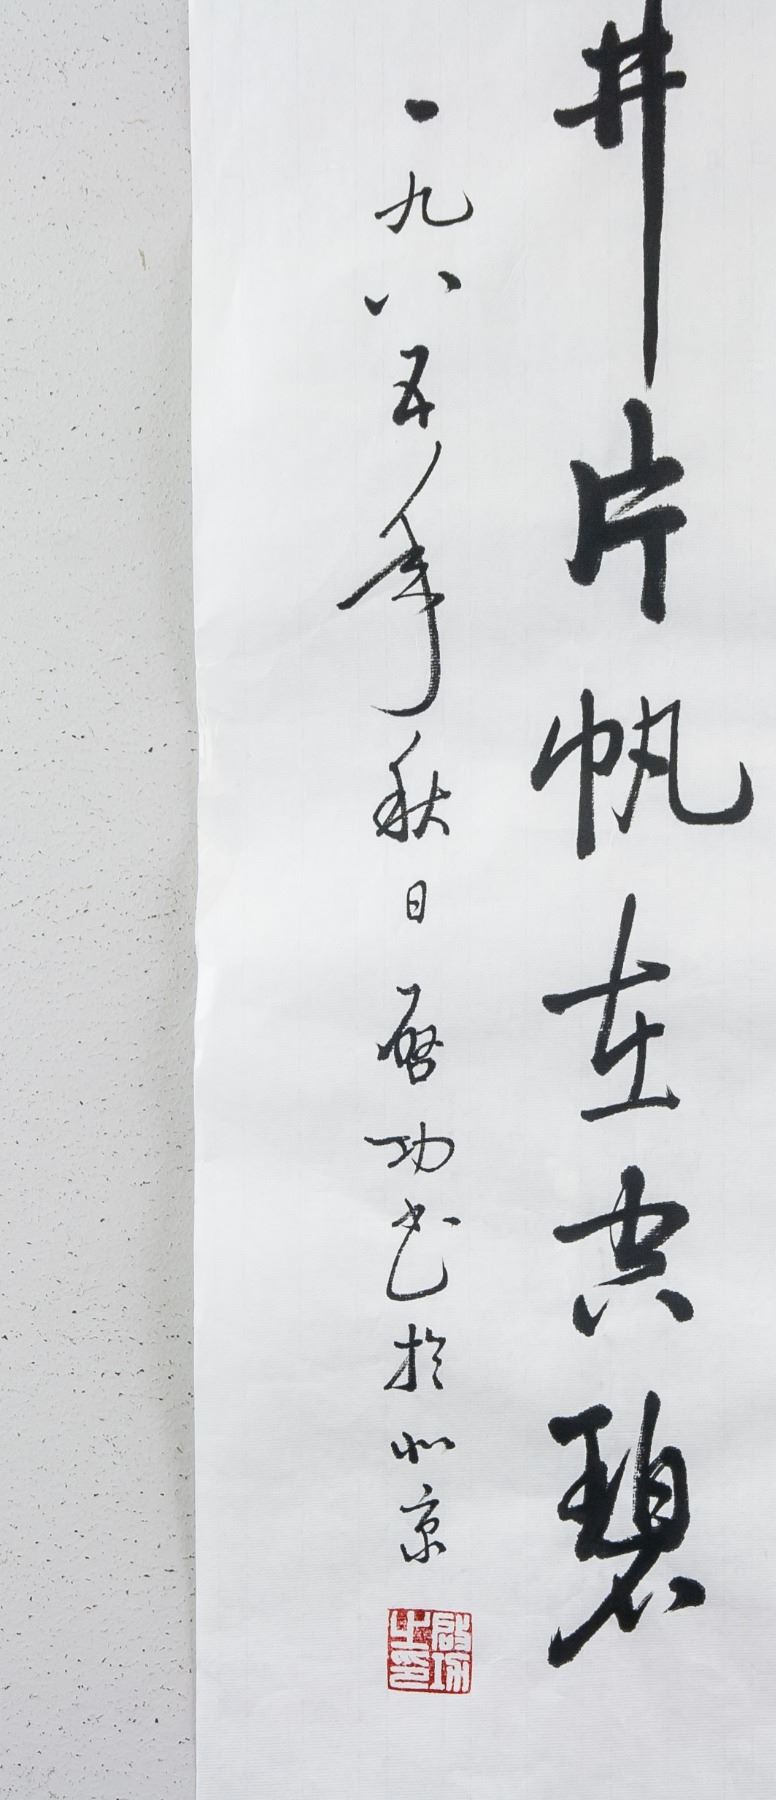 片帆在碧
一九八五年秋日启功书於北京
啟功之印